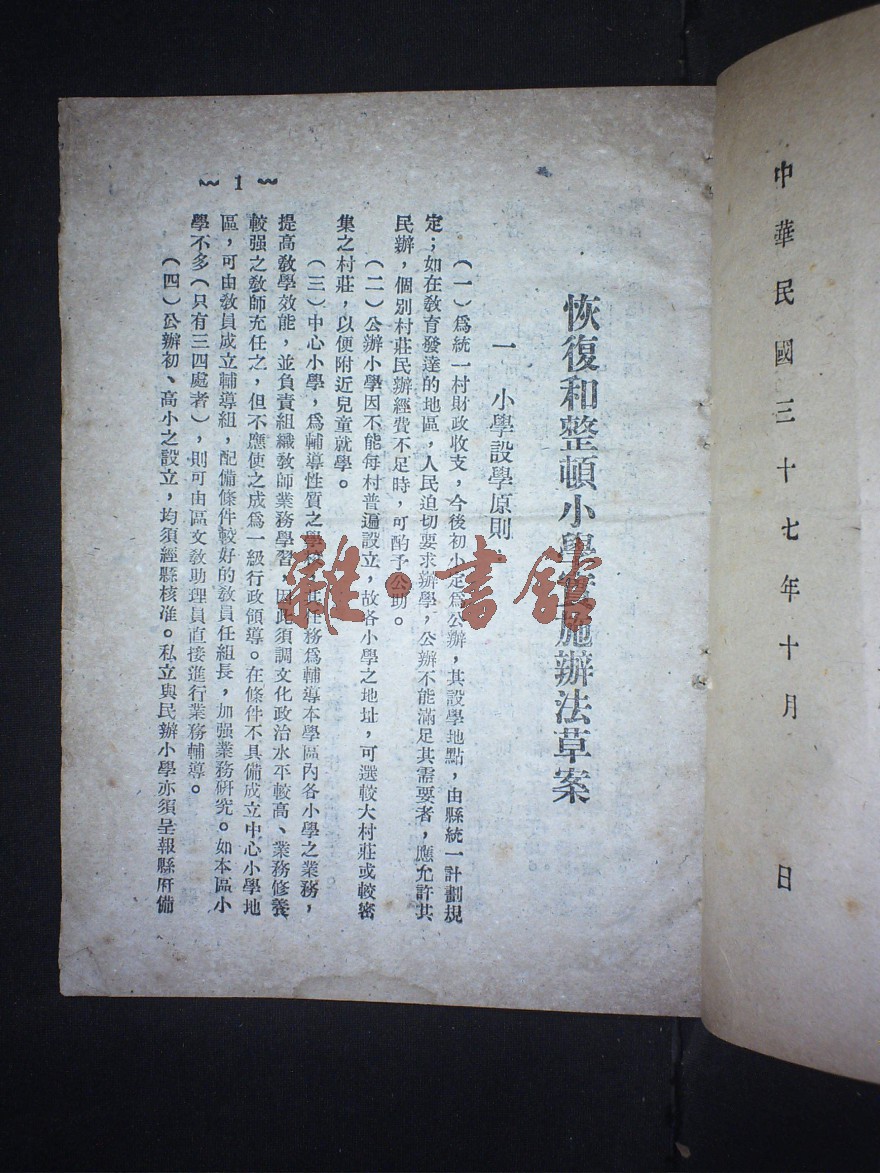 中華民國三十七年十月　日
恢復和整頓小學實施辦法草案
一　小學設學原則
（一）爲統一村財政收支，今後初小定爲公辦，其設學地點，由縣統一計劃規
定；如在敎育發達的地區，人民迫切要求辦學，公辦不能滿足其需要者，應允許其
民辦，個別村莊民辦經費不足時，可酌予公助。
（二）公辦小學因不能每村普遍設立，故各小學之地址，可選較大村莊或較密
集之村莊，以便附近兒童就學。
（三）中心小學，爲輔導性質之學校，其任務爲輔導本學區內各小學之業務，
提高敎學效能，並負責組織敎師業務學習，因此須調文化政治水平較高、業務修養
較强之敎師充任之，但不應使之成爲一級行政領導。在條件不具備成立中心小學地
區，可由敎員成立輔導組，配備條件較好的敎員任組長，加强業務研究。如本區小
學不多（只有三四處者），則可由區文敎助理員直接進行業務輔導。
（四）公辦初、高小之設立，均須經縣核准。私立與民辦小學亦須呈報縣府備
1
雜·書館